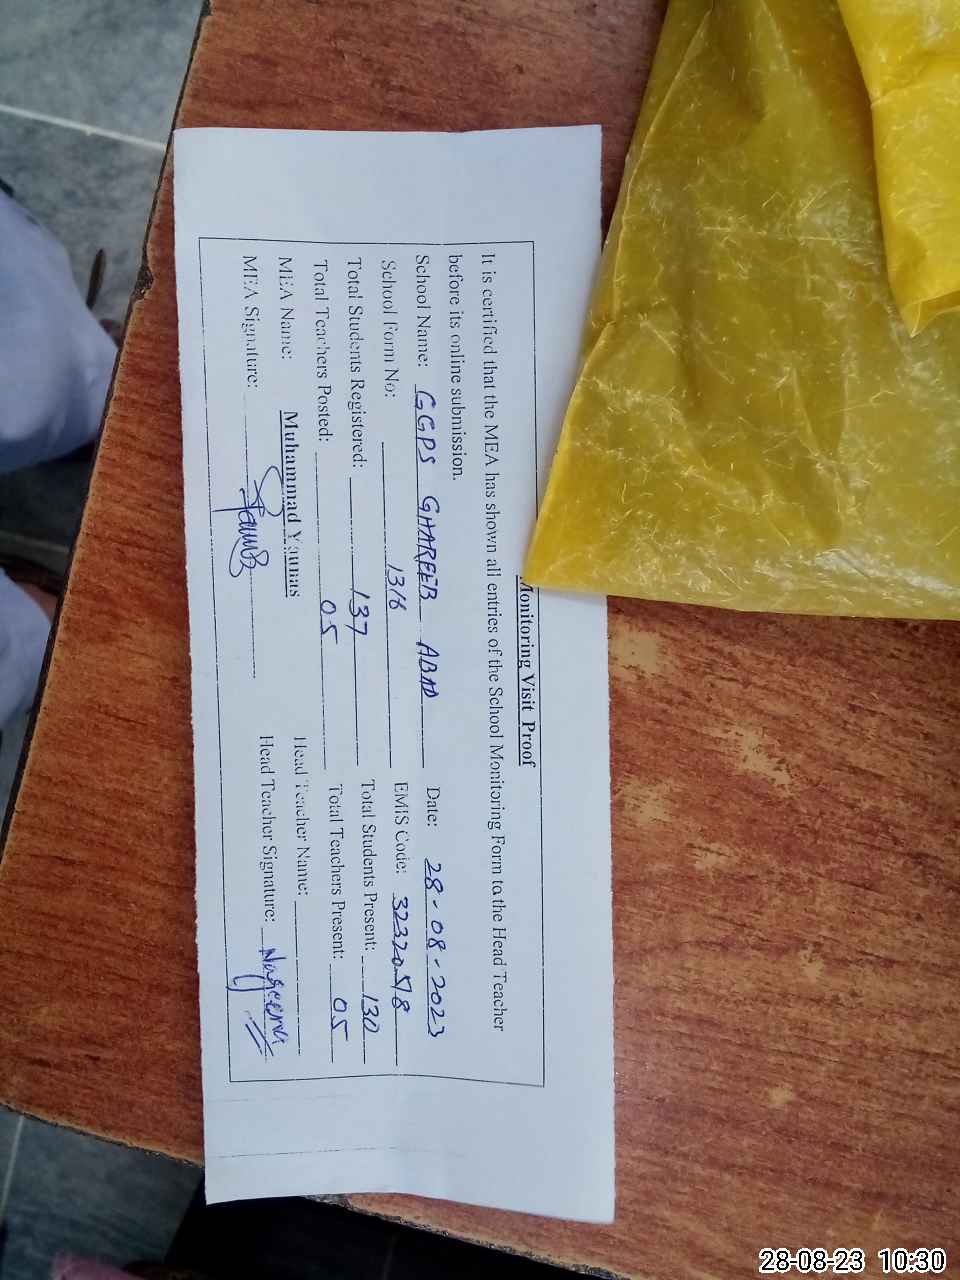 Monitoring Visit Proof
It is certified that the MEA has shown all entries of the School Monitoring Form to the Head Teacher
before its online submission.
School Name: GGPS GHAREEB ABAD Date: 28-08-2023
School Form No: 1316 EMIS Code:
Total Students Registered: 137 Total Students Present: 130
Total Teachers Posted: 05 Total Teachers Present: 05
MEA Name: Muhammad Younas Head Teacher Name:
MEA Signature: Head Teacher Signature:
28-08-23 10:30